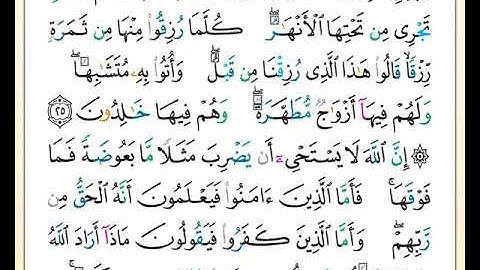 تَجْرِى مِن تَحْتِهَا ٱلْأَنْهَـٰرُ ۖ كُلَّمَا رُزِقُوا۟ مِنْهَا مِن ثَمَرَةٍ
رِّزْقًا ۙ قَالُوا۟ هَـٰذَا ٱلَّذِى رُزِقْنَا مِن قَبْلُ ۖ وَأُتُوا۟ بِهِۦ مُتَشَـٰبِهًا ۖ
وَلَهُمْ فِيهَآ أَزْوَٰجٌ مُّطَهَّرَةٌ ۖ وَهُمْ فِيهَا خَـٰلِدُونَ ٢٥
۞ إِنَّ ٱللَّهَ لَا يَسْتَحْىِۦٓ أَن يَضْرِبَ مَثَلًا مَّا بَعُوضَةً فَمَا
فَوْقَهَا ۚ فَأَمَّا ٱلَّذِينَ ءَامَنُوا۟ فَيَعْلَمُونَ أَنَّهُ ٱلْحَقُّ مِن
رَّبِّهِمْ ۖ وَأَمَّا ٱلَّذِينَ كَفَرُوا۟ فَيَقُولُونَ مَاذَآ أَرَادَ ٱللَّهُ